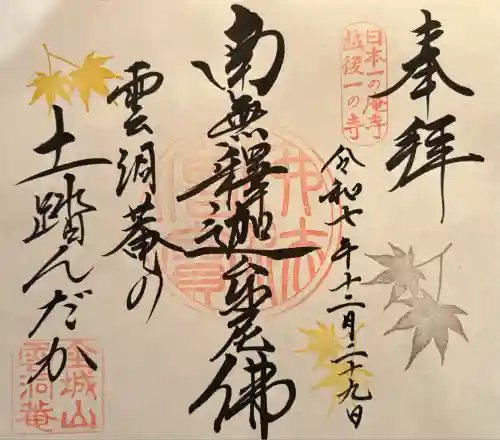 奉拝
日本一の庵寺
越後一の寺
令和七年十二月二十九日
南無釋迦牟尼佛
雲洞菴の
土踏んだか
金城山
雲洞菴